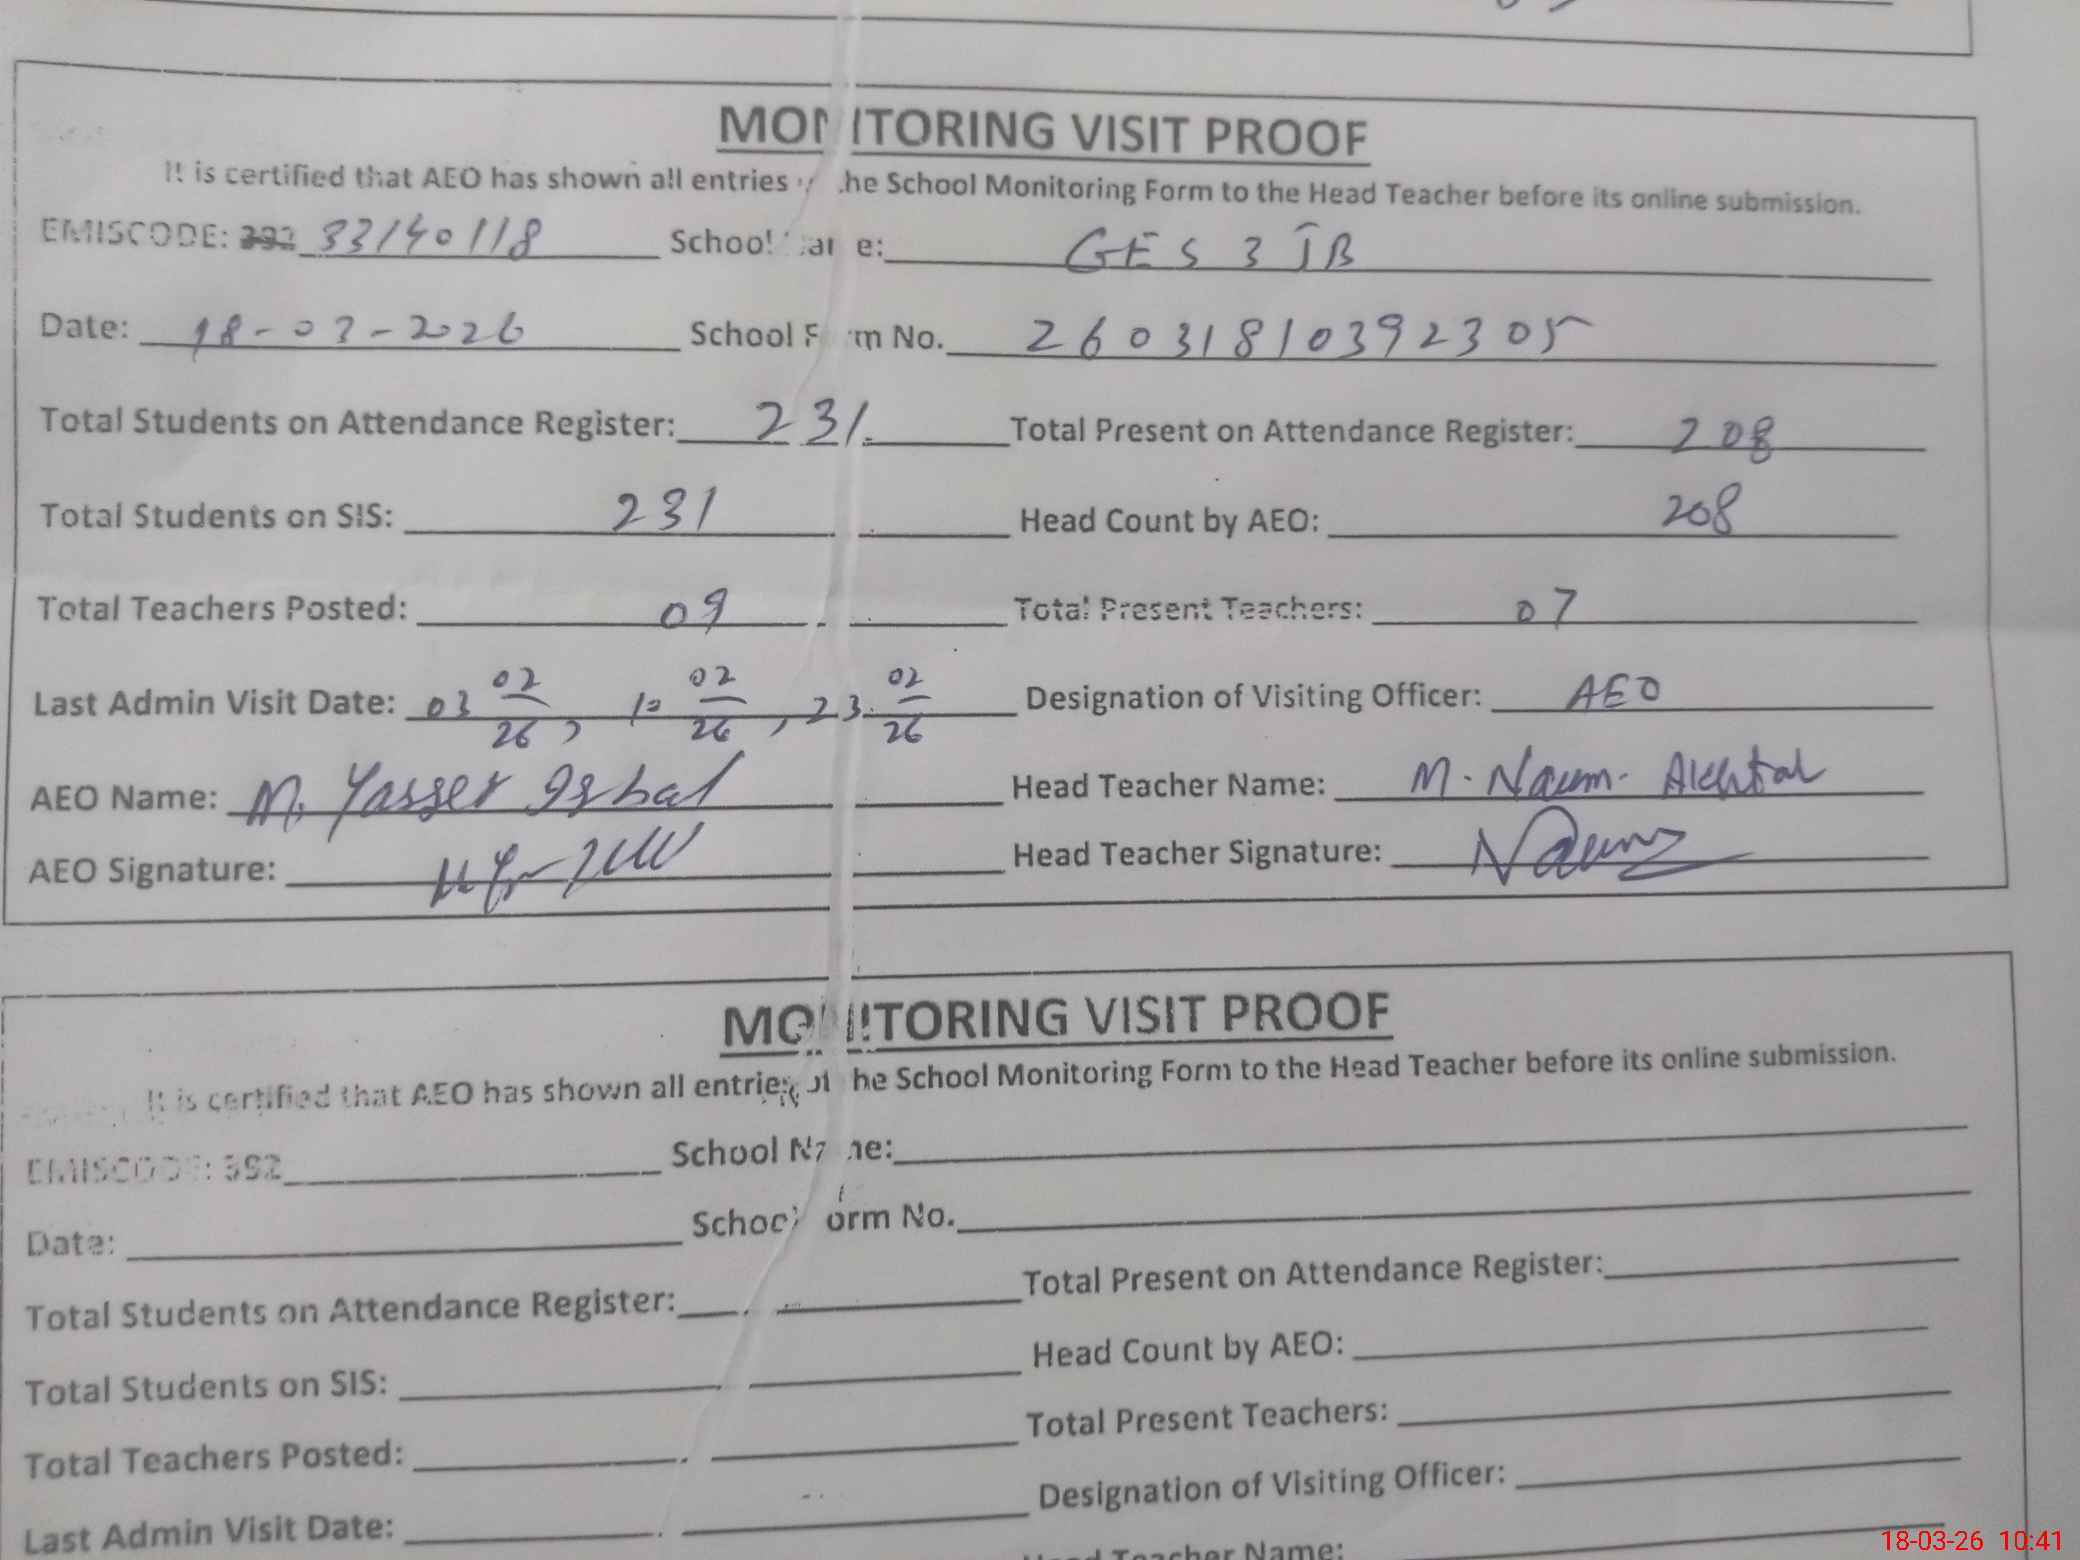 MONITORING VISIT PROOF
It is certified that AEO has shown all entries the School Monitoring Form to the Head Teacher before its online submission.
EMISCODE: 392 33140118 School Name: GES 3 JB
Date: 18-03-2026 School Form No. 26031810392305
Total Students on Attendance Register: 231 Total Present on Attendance Register: 208
Total Students on SIS: 231 Head Count by AEO: 208
Total Teachers Posted: 09 Total Present Teachers: 07
Last Admin Visit Date: 03 02/26, 10 02/26, 23 02/26 Designation of Visiting Officer: AEO
AEO Name: M. Yasser Iqbal Head Teacher Name: M. Naeem Akhtar
AEO Signature: Head Teacher Signature: Naeem
MONITORING VISIT PROOF
It is certified that AEO has shown all entries of the School Monitoring Form to the Head Teacher before its online submission.
EMISCODE: 392 School Name:
Date: School Form No.
Total Students on Attendance Register: Total Present on Attendance Register:
Total Students on SIS: Head Count by AEO:
Total Teachers Posted: Total Present Teachers:
Last Admin Visit Date: Designation of Visiting Officer:
Head Teacher Name:
18-03-26 10:41